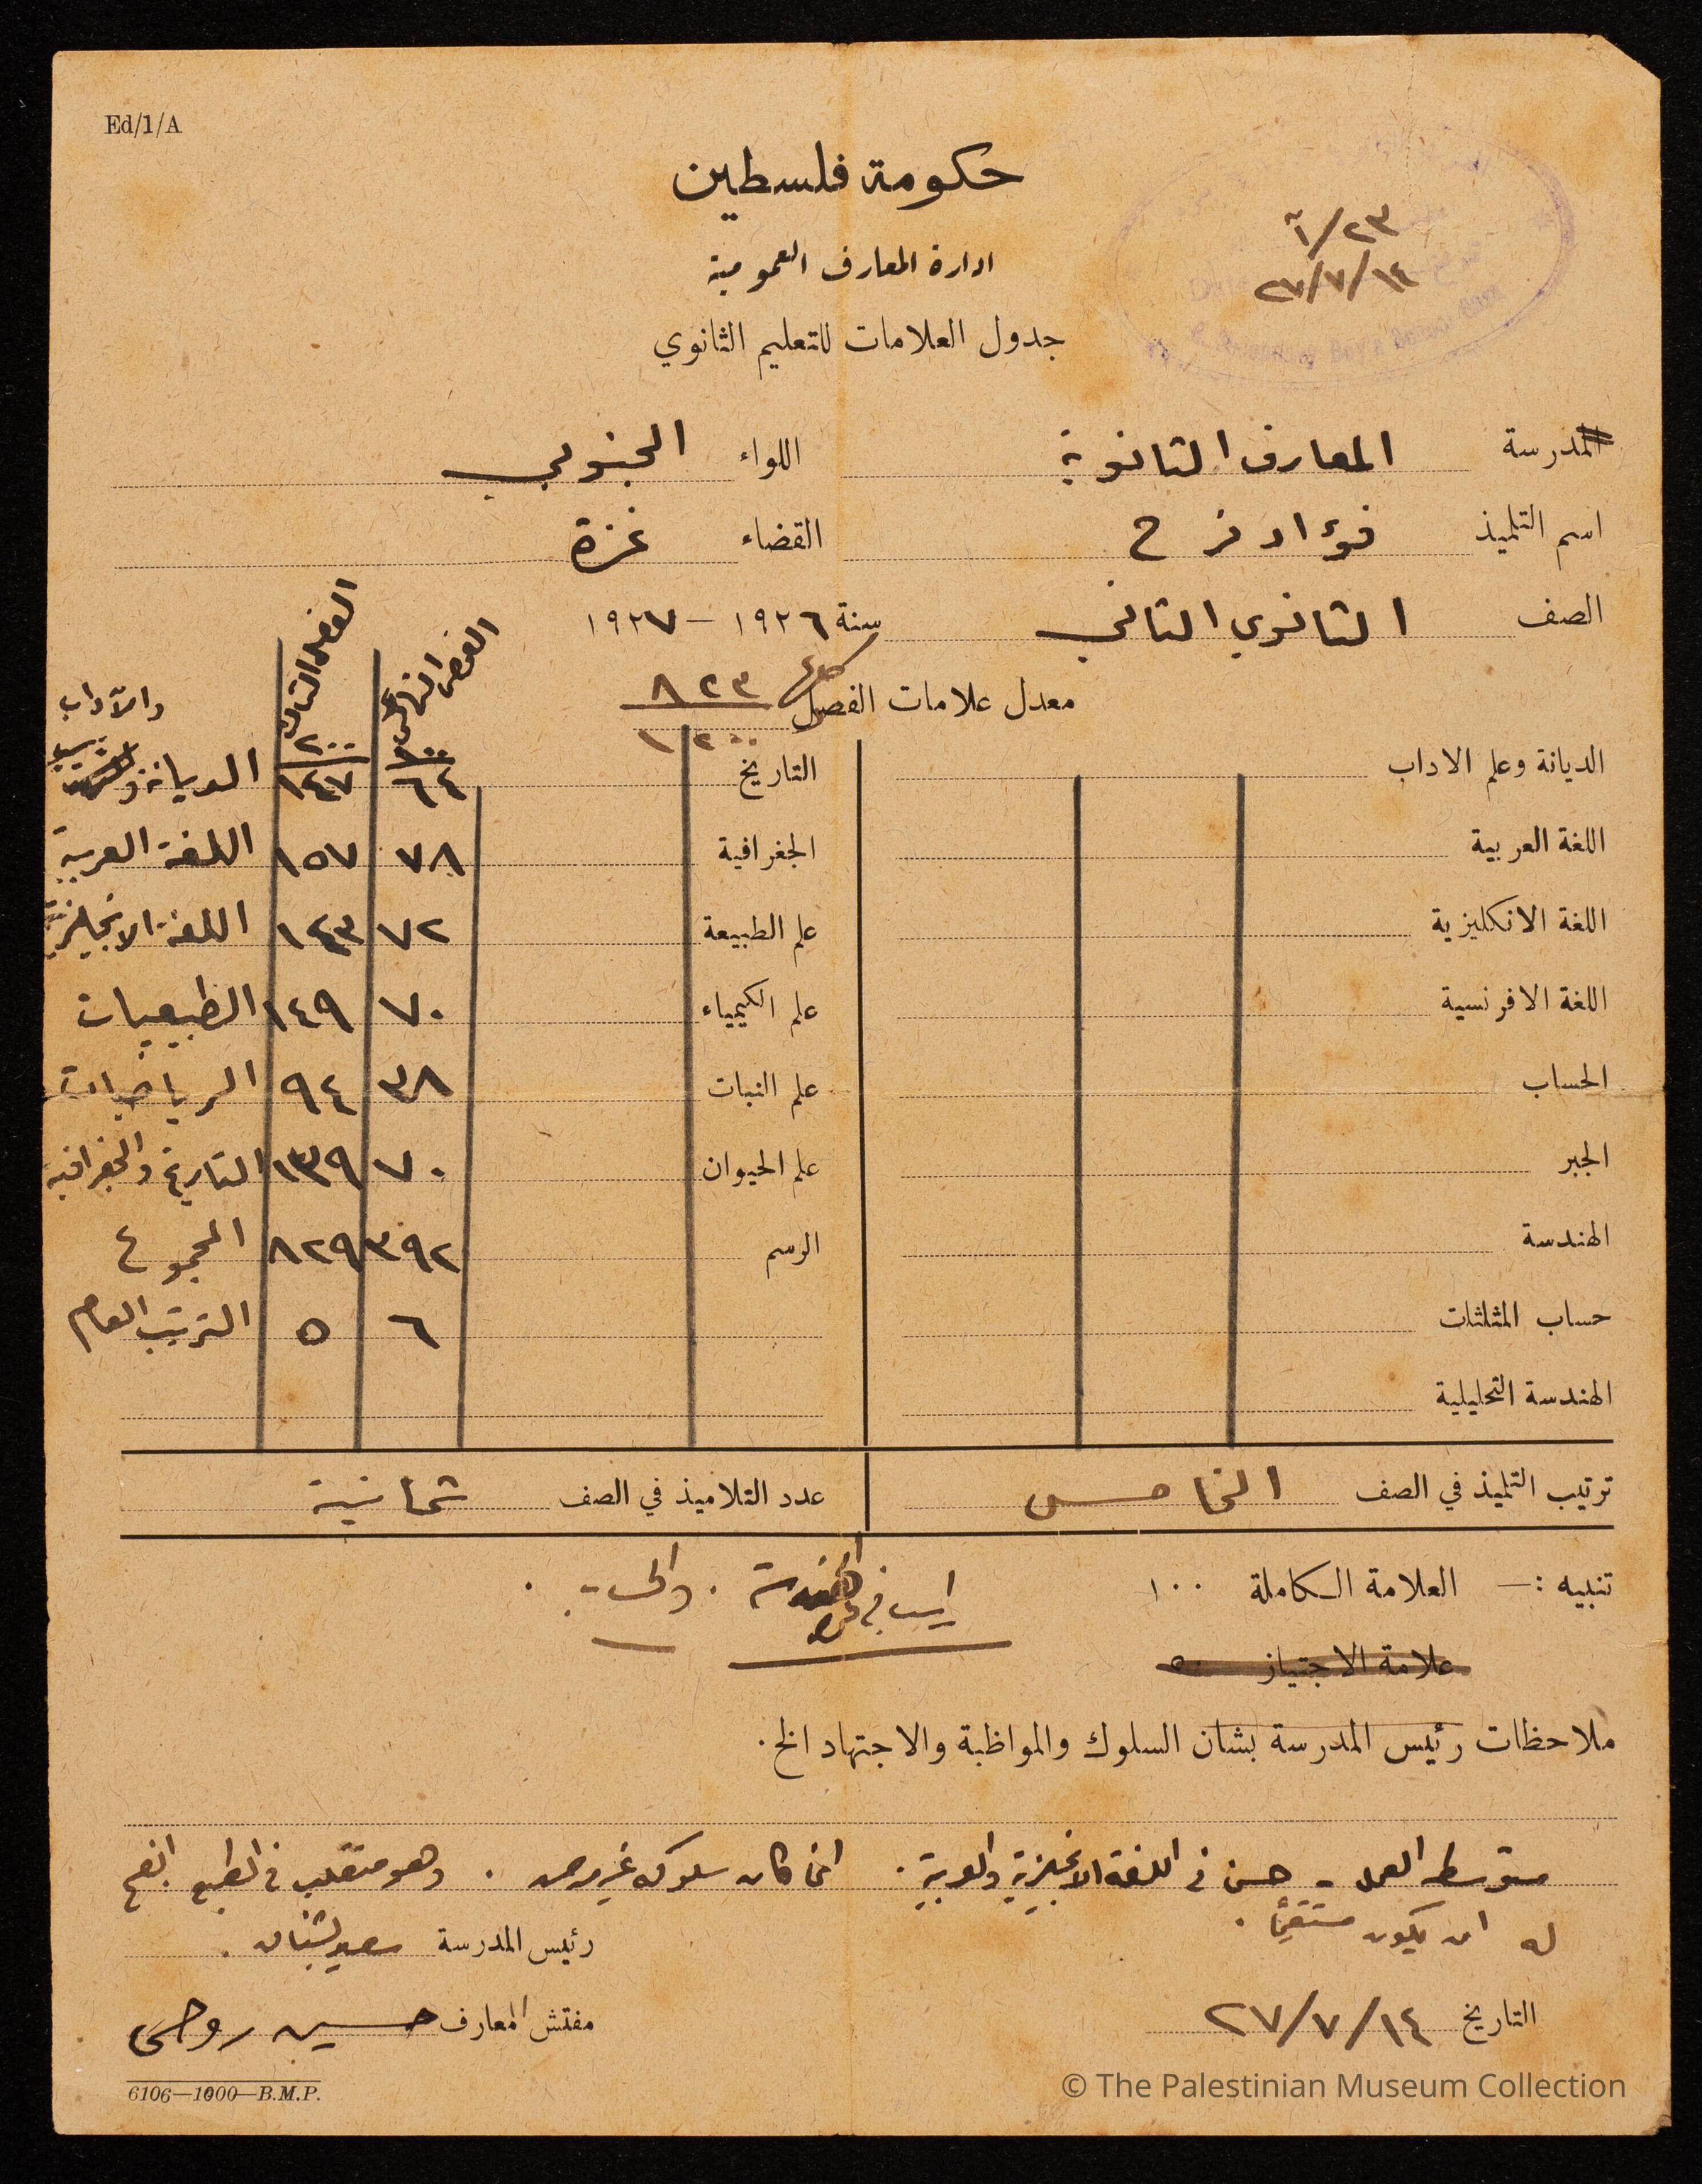 Ed/1/A
حكومة فلسطين
ادارة المعارف العمومية
جدول العلامات للتعليم الثانوي
٢٣/آ
٢٧/٧/١٤
المدرسة المعارف الثانوية اللواء الجنوبي
اسم التلميذ فؤاد فرح القضاء غزة
الصف الثانوي الثاني سنة ١٩٢٦ – ١٩٢٧
معدل علامات الفصل ٨٢٣
١٢٠٠
الفصل الثالث ٢٠٠
١٠٠
والآداب
الديانة وعلم الاداب التاريخ ٦٤ ١٤٧ الديانة
اللغة العربية الجغرافية ٧٨ ١٥٧ اللغة العربية
اللغة الانكليزية علم الطبيعة ٧٢ ١٤٣ اللغة الانجليزية
اللغة الافرنسية علم الكيمياء ٧٠ ١٤٩ الطبيعيات
الحساب علم النبات ٣٨ ٩٤ الرياضيات
الجبر علم الحيوان ٧٠ ١٣٩ التاريخ والجغرافية
الهندسة الرسم ٣٩٢ ٨٢٩ المجموع
حساب المثلثات ٦ ٥ الترتيب العام
الهندسة التحليلية
ترتيب التلميذ في الصف الخامس عدد التلاميذ في الصف ثمانية
تنبيه :— العلامة الكاملة ١٠٠
علامة الاجتياز ٥٠
ملاحظات رئيس المدرسة بشان السلوك والمواظبة والاجتهاد الخ.
متوسط العمل - حسن في اللغة الانجليزية والعربية . انما كان سلوكه غير مرض . وهو متقلب في الطبع انصح
له ان يكون مستقيماً .
رئيس المدرسة
التاريخ ٢٧/٧/١٤
مفتش المعارف حسين روحي
6106—1000—B.M.P.
© The Palestinian Museum Collection